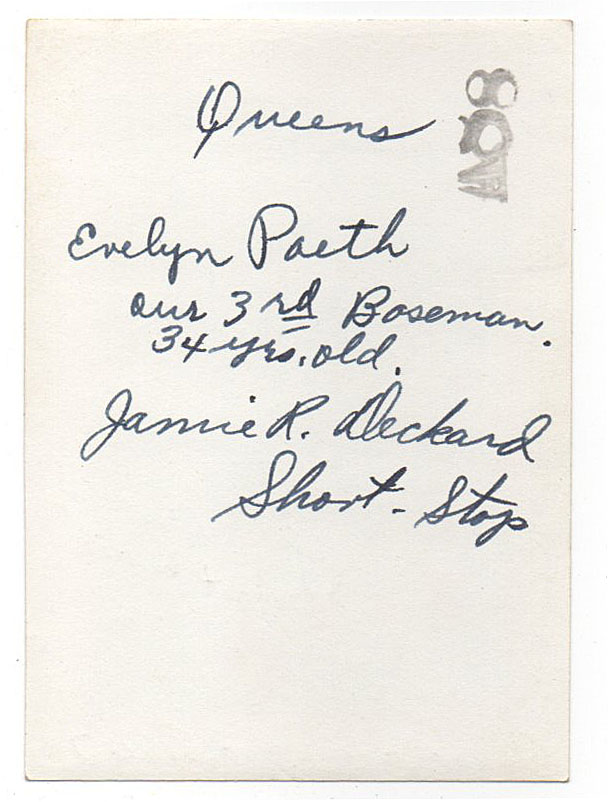 Queens
Evelyn Paeth
our 3rd Baseman.
34 yrs. old.
Jamie R. Deckard
Short-Stop